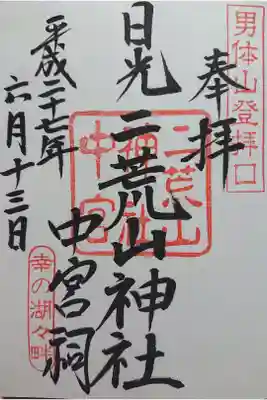 男体山登拝口
奉拝
日光二荒山神社
中宮祠
二荒山
神社
中宮
平成二十七年
六月十三日
幸の湖々畔